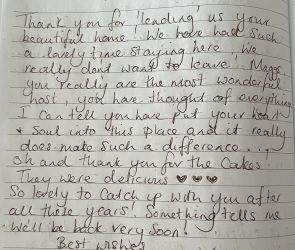 Thank you for 'lending' us your
beautiful home. We have had such
a lovely time staying here. We
really don't want to leave! Meggs,
you really are the most wonderful
host, you have thought of everything
I can tell you have put your heart
& Soul into this place and it really
does make such a difference....
Oh and thank you for the Cakes!
They were delicious ♥♥♥
So lovely to Catch up with you after
all those years! Something tells me
we'll be back very soon!
Best wishes